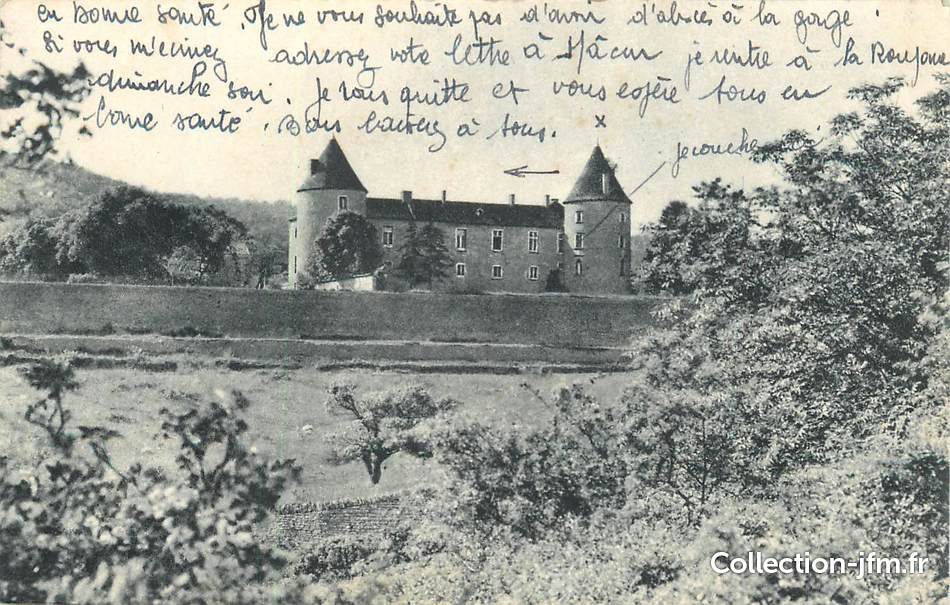 en bonne santé. Je ne vous souhaite pas d'avoir d'abcès à la gorge.
Si vous m'écrivez adressez vote lettre à Mâcon je rentre à la
dimanche soir. Je vous quitte et vous espère tous en
bonne santé. Bons baisers à tous.
x
je couche ici
Collection-jfm.fr